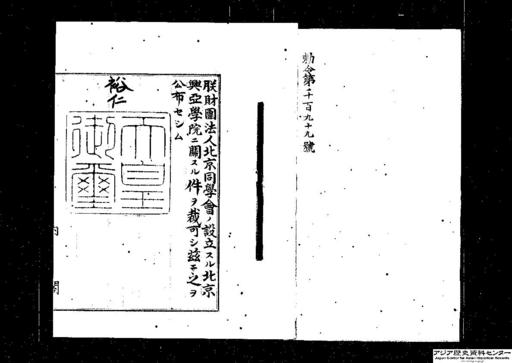 勅令第千百九十九號
朕財團法人北京同學會ノ設立スル北京
興亞學院ニ關スル件ヲ裁可シ茲ニ之ヲ
公布セシム
裕仁
天皇
御璽
内閣
アジア歴史資料センター
Japan Center for Asian Historical Records